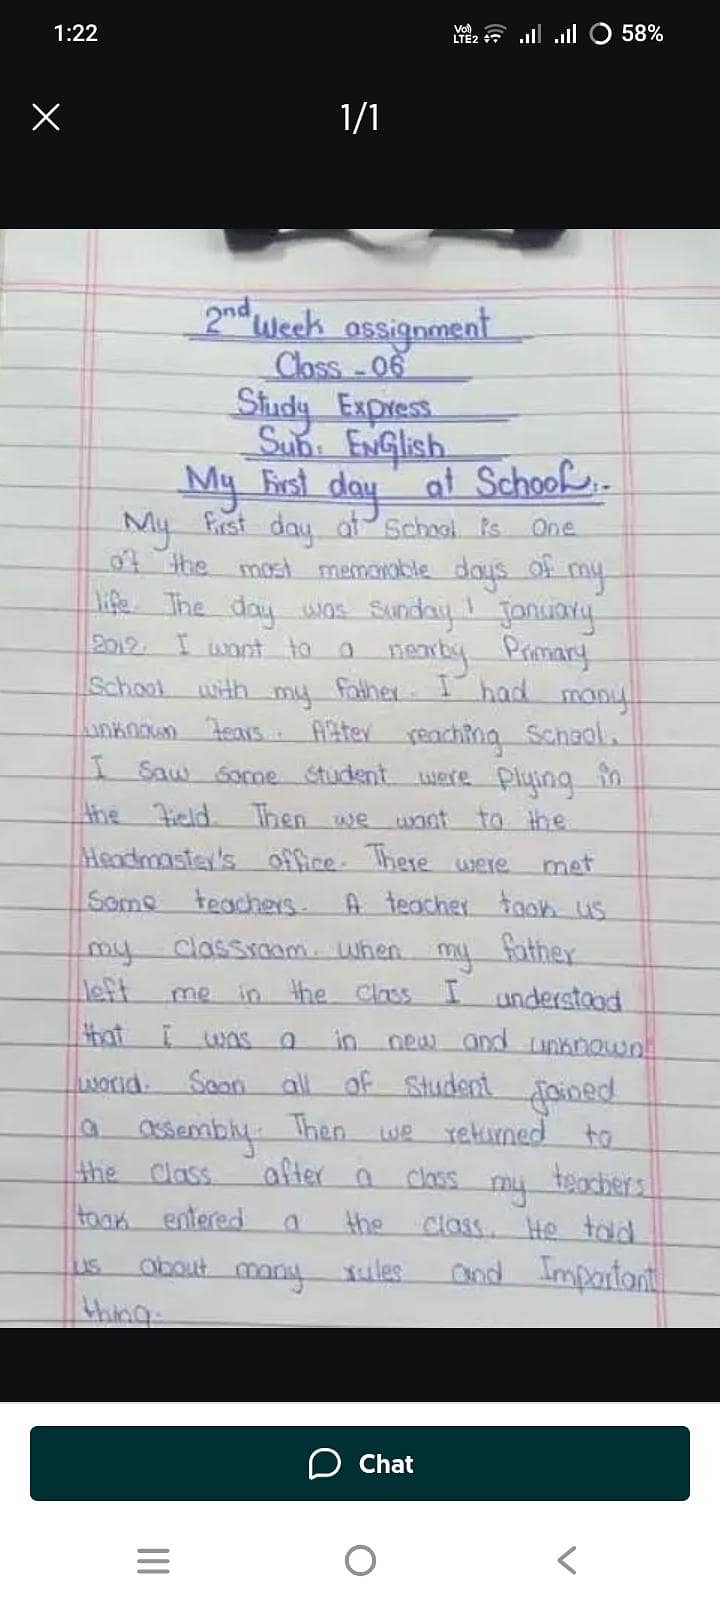 1:22
Vo) LTE2 58%
1/1
2nd Week assignment
Class - 06
Study Express
Sub: ENGlish
My First day at School:-
My first day at School is One
of the most memorable days of my
life. The day was Sunday 1 January
2012. I want to a nearby Primary
School with my father. I had many
unknown fears. After reaching School.
I Saw some student were Plying in
the field. Then we want to the
Headmaster's office. There were met
Some teachers. A teacher took us
my classroom. when my father
left me in the class I understood
that i was a in new and unknown
world. Soon all of Student joined
a assembly. Then we returned to
the class after a class my teachers
took entered a the class. He told
us about many rules and Important
thing.
Chat